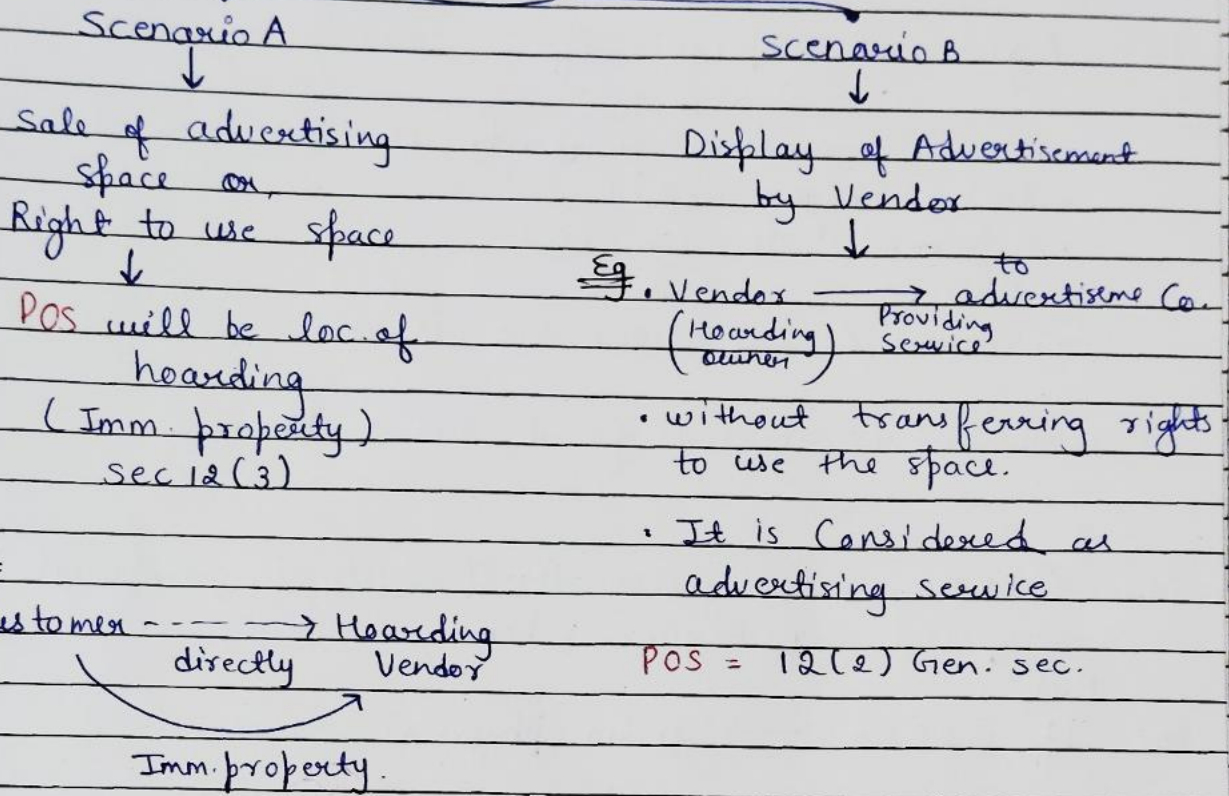 Scenario A
Sale of advertising
space or
Right to use space
POS will be loc. of
hoarding
(Imm. property)
Sec 12(3)
ustomer ----→ Hoarding
directly Vendor
Imm. property.
Scenario B
Display of Advertisement
by Vendor
Eg. • Vendor → to advertiseme Co.
(Hoarding owner) Providing Service
• without transferring rights
to use the space.
• It is Considered as
advertising service
POS = 12(2) Gen. sec.